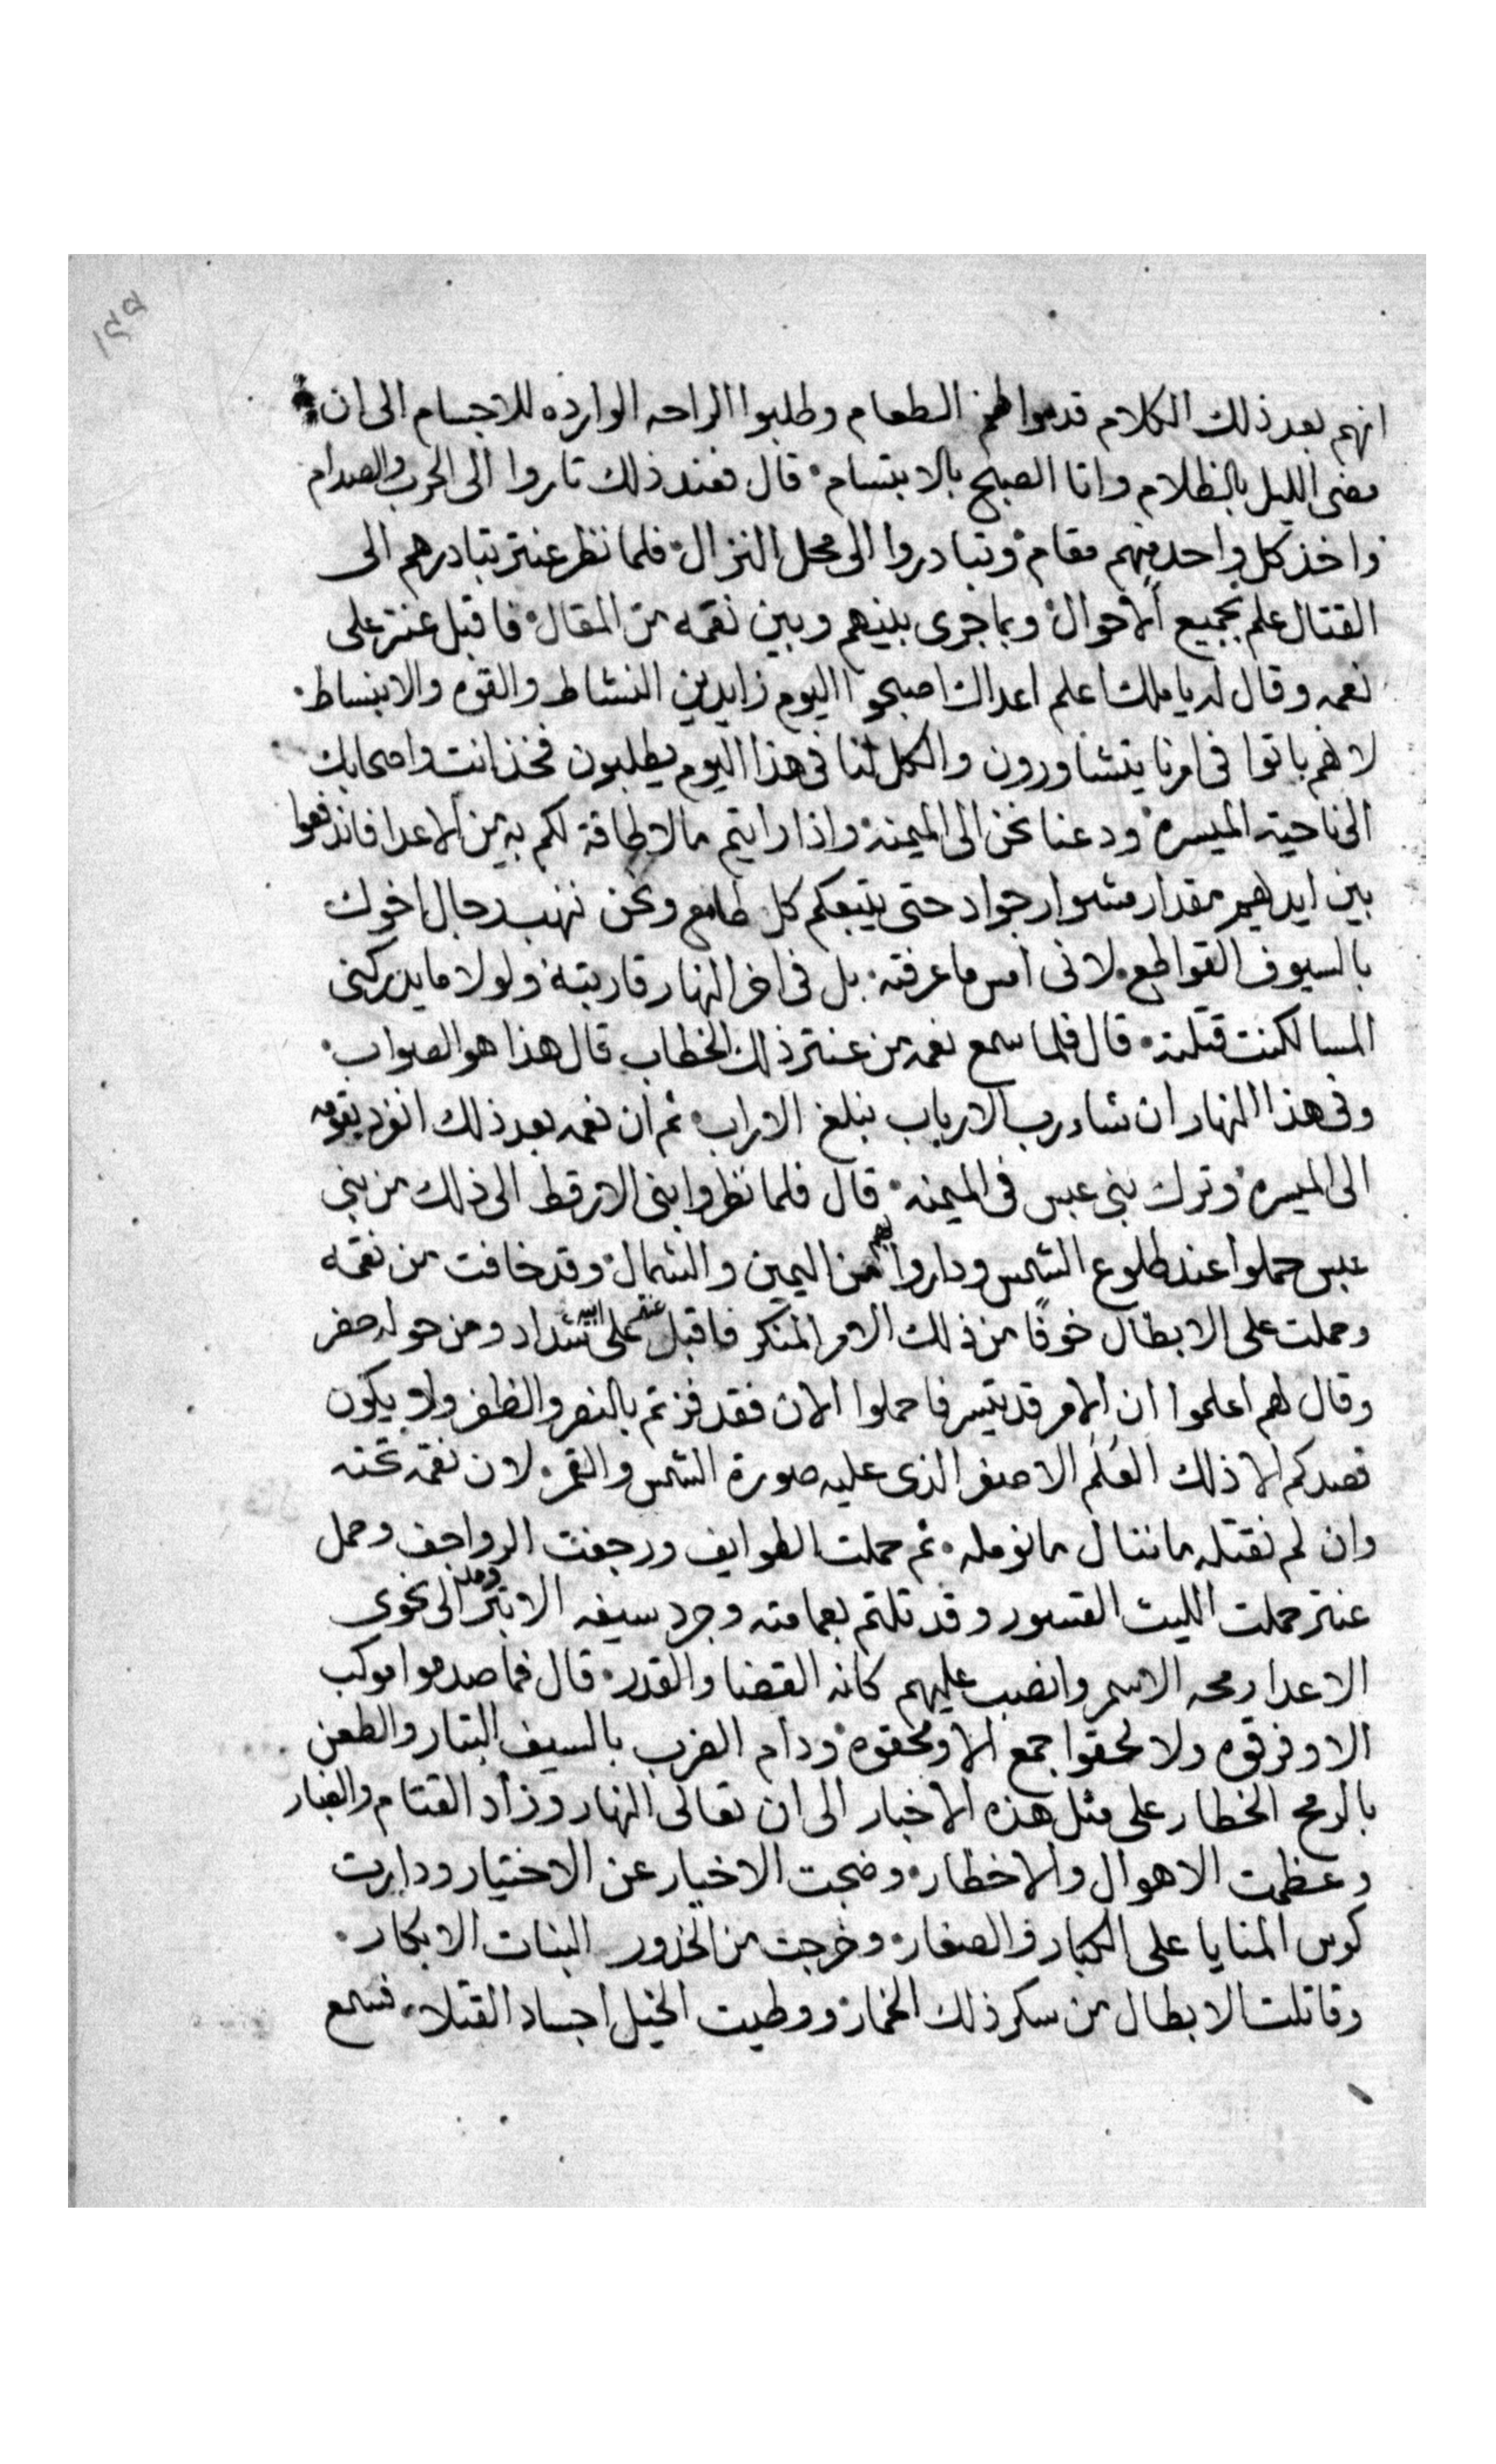 ١٩٩
انهم بعد ذلك الكلام قدموا لهم الطعام وطلبوا الراحه الوارده للاجسام الى ان
مضى الليل بالظلام واتا الصبح بالابتسام قال فعند ذلك تاروا الى الحرب والصدام
واخذ كل واحد منهم مقام وتبادروا الى محل النزال فلما نظر عنتر تبادرهم الى
القتال علم بجميع الاحوال وبما جرى بينهم وبين نقمه من المقال فاقبل عنتر على
نعمه وقال له يا ملك اعلم اعداك اصبحوا اليوم زايدين النشاط والقوه والانبساط
لانهم باتوا في امرنا يتشاورون والكل لنا في هذا اليوم يطلبون فخذ انت واصحابك
الى ناحيته الميسره ودعنا نحن الى الميمنة واذا رايتم مالا طاقة لكم به من الاعدا فاندفعوا
بين ايدهيم مقدار مشوار جواد حتى يتبعكم كل طامع ونحن ننهب رجال اخوك
بالسيوف القواطع لانى امس ما عرفته بل في اخر النهار قاربته ولولا ما يدركنى
المسا لكنت قتلته قال فلما سمع نعمه من عنتر ذلك الخطاب قال هذا هو الصواب
وفى هذا النهار ان شا درب الارباب نبلغ الاراب ثم ان نعمه بعد ذلك انفرد بقومه
الى الميسره وترك بنى عبس في الميمنه قال فلما نظروا بنى الارقط الى ذلك من بنى
عبس حملوا عند طلوع الشمس وداروا بهم من اليمين والشمال وقد خافت من نقمه
وحملت على الابطال خوفًا من ذلك الامر المنكر فاقبل عنتر على ابيه شداد ومن حوله حضر
وقال لهم اعلموا ان الامر قد تيسر فاحملوا الان فقد فزتم بالنصر والظفر ولا يكون
قصدكم الا ذلك العَلَم الاصفر الذى عليه صورة الشمس والقمر لان نقمة تحته
وان لم نقتله ما ننال ما نومله ثم حملت الطوايف ورجفت الرواجف وحمل
عنتر حملت الليث القسور وقد تلتم بعمامته وجرد سيفه الابتر ومد الى نحوى
الاعدا رمحه الاسمر وانصب عليهم كانه القضا والقدر قال فما صدموا موكب
الا وفرقوه ولا لحقوا جمع الا ومحقوه ودام الضرب بالسيف البتار والطعن
بالرمح الخطار على مثل هذه الاخبار الى ان تعالى النهار وزاد القتام والغبار
وعظمت الاهوال والاخطار وضجت الاخيار عن الاختيار ودارت
كوس المنايا على الكبار والصغار وخرجت من الخدور البنات الابكار
وقاتلت الابطال من سكر ذلك الخمار ووطيت الخيل اجساد القتلا فسمع